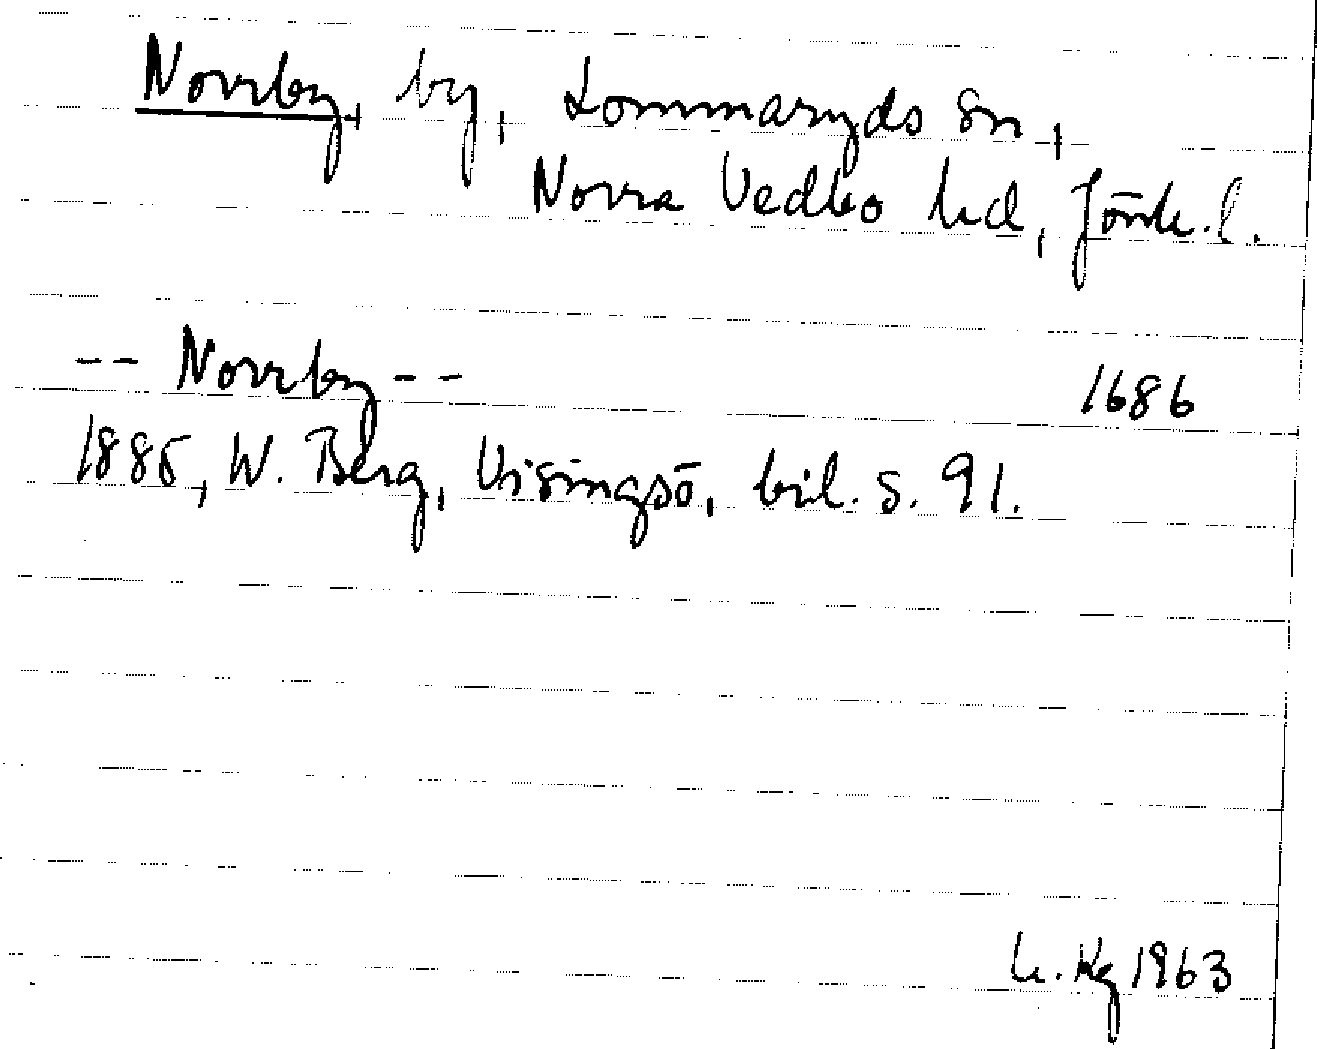 Norrby, by, Lommaryds sn,
Norra Vedbo hd, Jönk. l.
-- Norrby -- 1686
1885, W. Berg, Visingsö, bil. s. 91.
1963